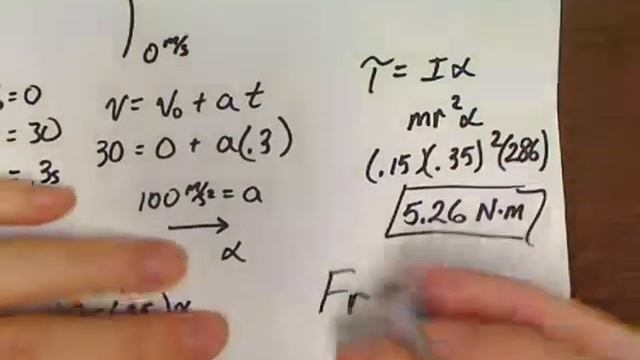 0 m/s
= 0
= 30
.3s
v = v₀ + at
30 = 0 + a(.3)
100 m/s² = a
→
α
τ = Iα
mr²α
(.15)(.35)²(286)
5.26 N·m
Fr